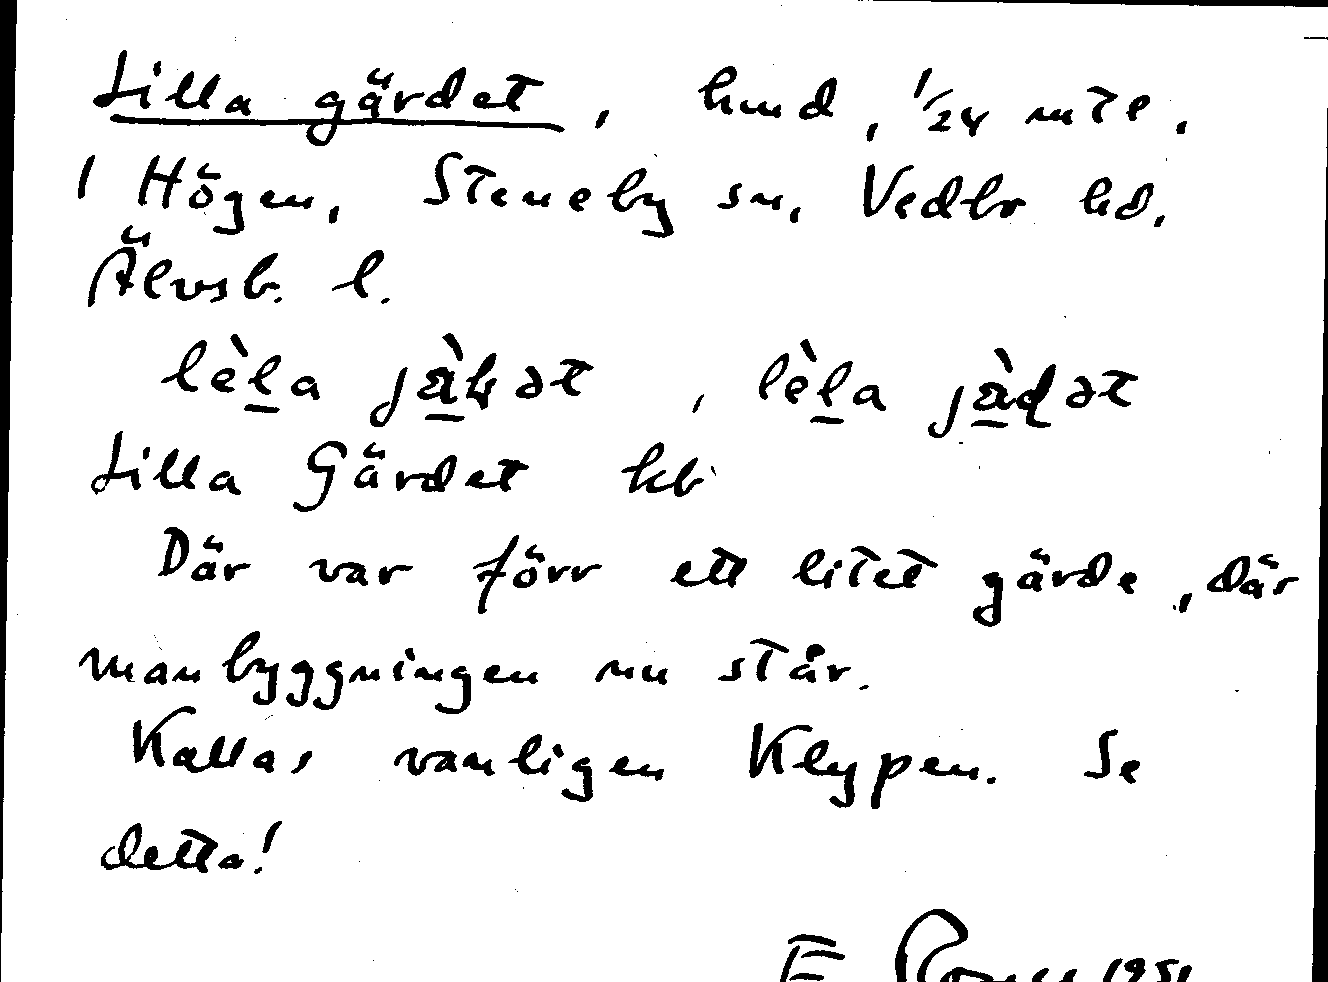 Lilla gärdet, hmd, 1/24 mtl,
1 Högen, Steneby sn, Vedbo hd.
Älvsb. l.
lèl̠a jàɽət, lèl̠a jàḍət
Lilla Gärdet kb
Där var förr ett litet gärde, där
manbyggningen nu står.
Kallas vanligen Klypen. Se
detta!
E 1951